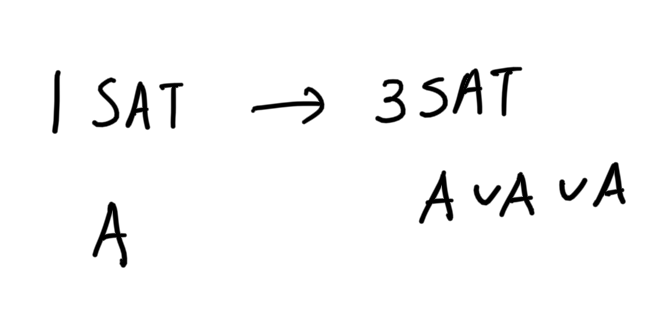 1 SAT → 3SAT
A A ∨ A ∨ A